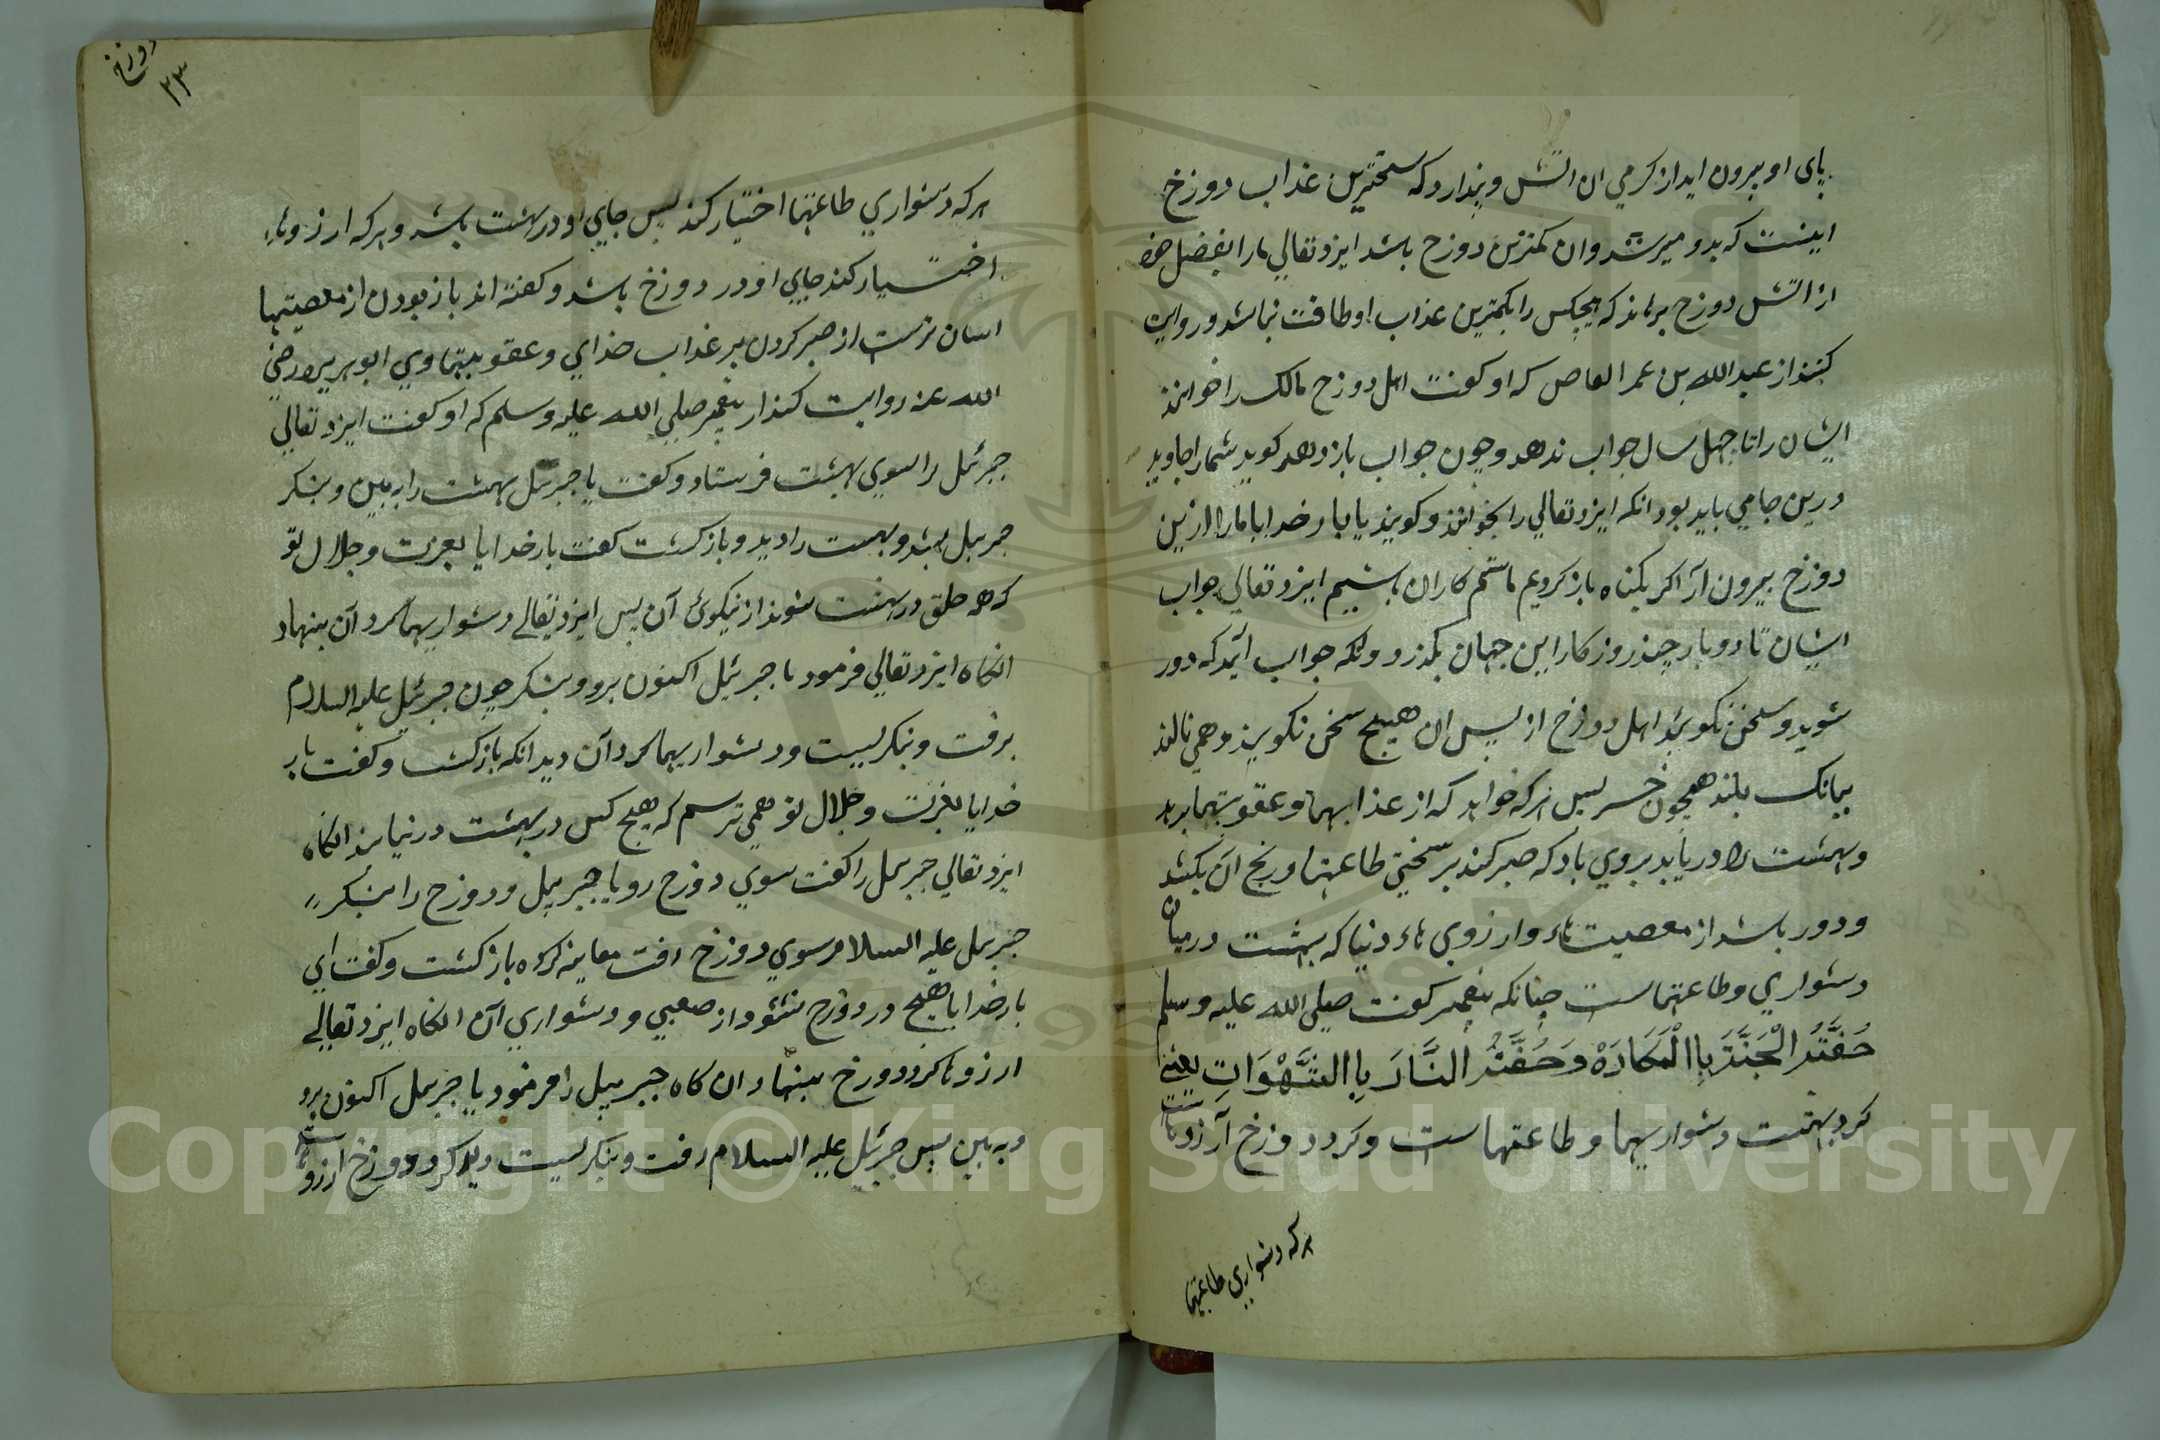 پای او بیرون اید از کرمي ان اتش و پندارد که سختترین عذاب دوزخ
اینست که بدو میرسد وان کمترین دوزخ باشد ایزد تعالي ما را بفضل خود
از اتش دوزخ برهاند که هیچکس را بکمترین عذاب او طاقت نباشد و روایت
کنند از عبد الله بن عمر العاص که او کفت اهل دوزخ مالک را خوانند
ایشان را تا چهل سال جواب ندهد وچون جواب باز دهد کوید شما را جاوید
درین جا مي باید بود انکه ایزد تعالي را بخوانند و کویند یا بار خدایا ما را ازین
دوزخ بیرون آر اکر بکناه باز کردیم ما ستم کاران باشیم ایزد تعالي جواب
ایشان تا دو بار چند روزکار این جهان بکذرد وانکه جواب آید که دور
شوید و سخن نکوئید اهل دوزخ از پس ان هیچ سخن نکویند و همي نالند
ببانک بلند همچون خر پس هر که خواهد که از عذابهما و عقوبتهما برهد
و بهشت را دریابد بروي باد که صبر کند بر سختي طاعتها و رنج آن بکشد
و دور باشد از معصیت هاء وارزوي هاء دنیا که بهشت در میان
دشواري و طاعتهاست چنانکه پیغمبر کفت صلي الله علیه وسلم
حُفَّتُ الْجَنَّةَ بِا الْمَكَارَهْ وَحُفَّتُ النَّارَ بِا الشَّهْوَاتِ یعني
کرد بهشت دشواریهما و طاعتهاست و کرد دوزخ آرزوهاست
هر که دشواري طاعتها
دوزخ
٢٣
هر که دشواري طاعتها اختیار کند پس جاي او در بهشت باشد و هر که ارزوهاء
اختیار کند جاي او در دوزخ باشد و کفته اند باز بودن از معصیتها
اسان ترست از صبر کردن بر عذاب خداي و عقوبتهاوي ابو هریره رضي
الله عنه روایت کند از پیغمبر صلي الله علیه وسلم که او کفت ایزد تعالي
جبرئیل را سوي بهشت فرستاد و کفت یا جبرئیل بهشت را به بین و بنکر
جبرئیل بشد و بهشت را دید و باز کشت کفت بار خدایا بعزت و جلال تو
که همه خلق در بهشت شوند از نیکوئ آن پس ایزد تعالے دشواریهما کرد آن بنهاد
انکاه ایزد تعالي فرمود یا جبرئیل اکنون برو و بنکر چون جبرئیل علیه السلام
برفت و بنکریست و دشواریهما کرد آن دید انکه باز کشت و کفت بار
خدایا بعزت و جلال تو همي ترسم که هیچ کس در بهشت در نیاید انکاه
ایزد تعالي جبرئیل را کفت سوي دوزخ رو یا جبرئیل و دوزخ را بنکر
جبرئیل علیه السلام سوي دوزخ رفت معاینه کرده باز کشت و کفت اي
بار خدایا هیچ در دوزخ نشود از صعبي و دشواري آن انکاه ایزد تعالے
ارزوها کرد دوزخ بنهاد ان کاه جبرئیل را فرمود یا جبرئیل اکنون برو
و به بین پس جبرئیل علیه السلام رفت و بنکریست دید کرد دوزخ ارزوهاست
Copyright © King Saud University